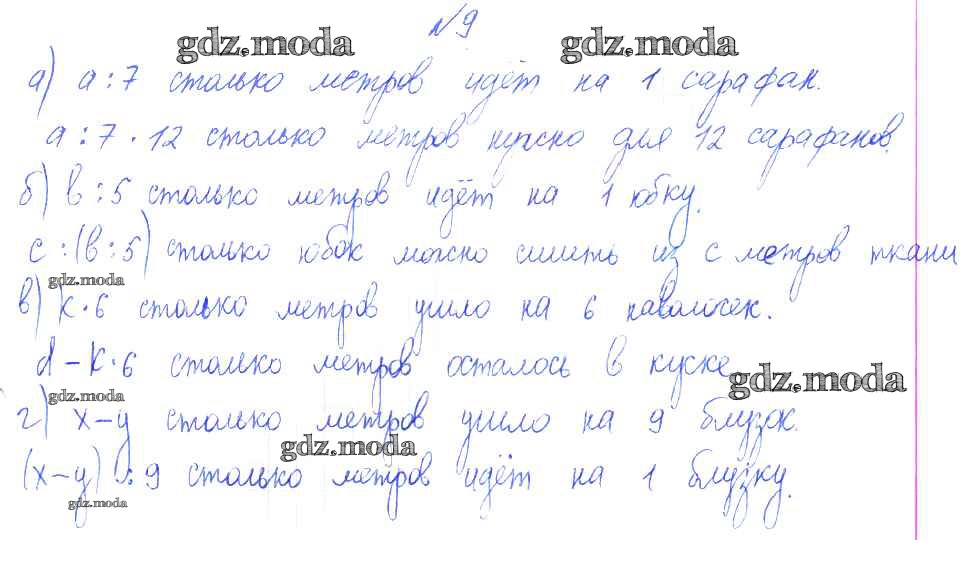 №9
gdz.moda gdz.moda
а) a : 7 столько метров идёт на 1 сарафан.
a : 7 · 12 столько метров нужно для 12 сарафанов.
б) b : 5 столько метров идёт на 1 юбку.
c : (b : 5) столько юбок можно сшить из c метров ткани
gdz.moda
в) k · 6 столько метров ушло на 6 наволочек.
d – k · 6 столько метров осталось в куске
gdz.moda
gdz.moda
г) x – y столько метров ушло на 9 блузок.
gdz.moda
(x – y) : 9 столько метров идёт на 1 блузку.
gdz.moda